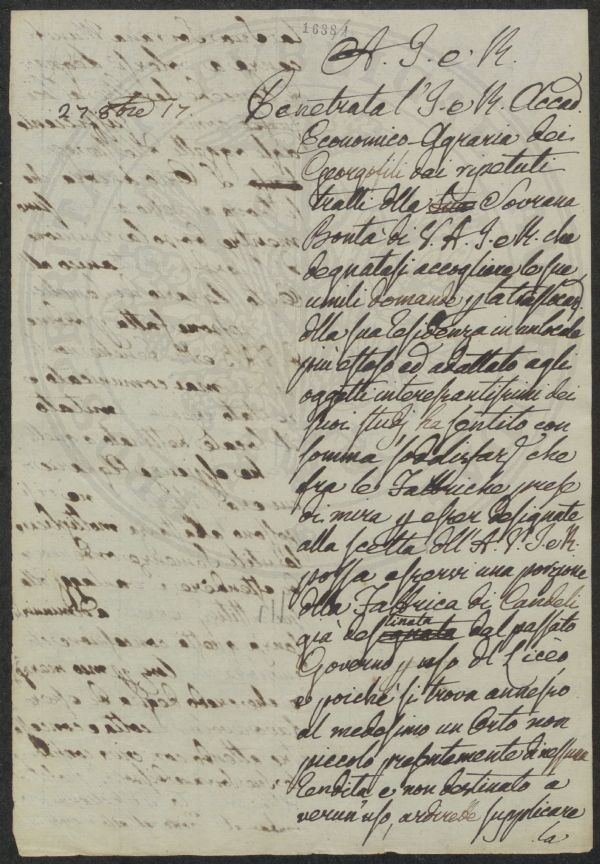 1638/1
A. I. e R.
27 8bre 17.
Penetrata l'I. e R. Accad.
Economico-Agraria dei
Georgofili dai ripetuti
tratti della Sua Sovrana
Bontà di V. A. I. e R. che
degnatasi accogliere le sue
umili domande p la traslocaz.
della sua residenza in un locale
più esteso ed adattato agli
oggetti interessantissimi dei
suoi studj, ha sentito con
somma sodisfaz. che
fra le Fabbriche prese
di mira p esser designate
alla scelta dell'A. V. I. e R.
possa esservi una porzione
della Fabbrica di Candeli
già destinata dal passato
Governo p uso di Licèo
e poichè si trova annesso
al medesimo un Orto non
piccolo presentemente di nessuna
rendita e non destinato a
verun'uso, ardirebbe supplicare
la